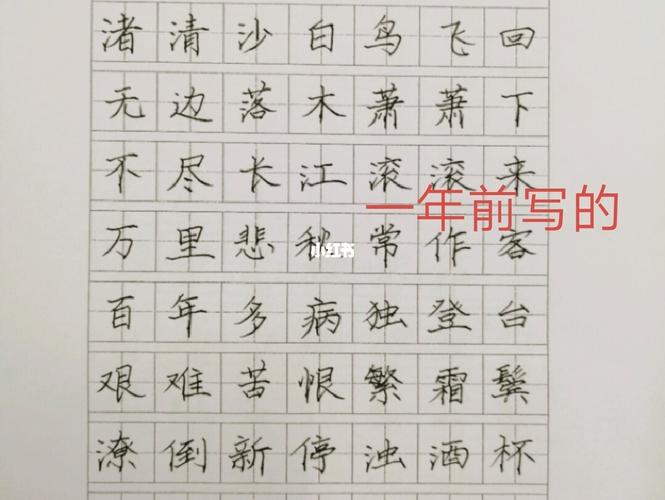 渚清沙白鸟飞回
无边落木萧萧下
不尽长江滚滚来
一年前写的
万里悲秋常作客
小红书
百年多病独登台
艰难苦恨繁霜鬓
潦倒新停浊酒杯